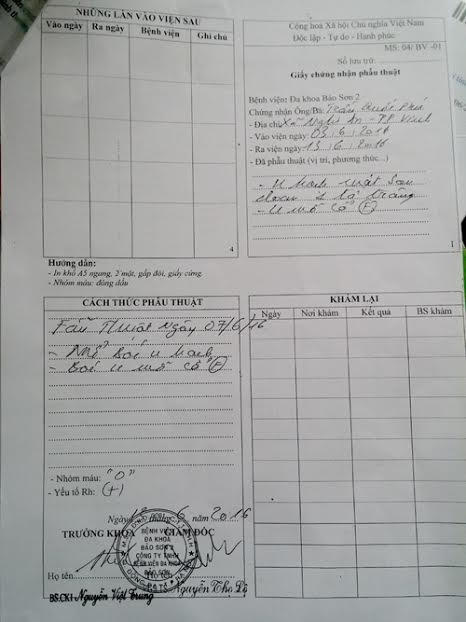 NHỮNG LẦN VÀO VIỆN SAU
Vào ngày Ra ngày Bệnh viện Ghi chú
4
Cộng hoà Xã hội Chủ nghĩa Việt Nam
Độc lập - Tự do - Hạnh phúc
MS: 04/ BV -01
Số lưu trữ:
Giấy chứng nhận phẫu thuật
Bệnh viện: Đa khoa Bảo Sơn 2
Chứng nhận Ông/Bà: Trần Quốc
- Địa chỉ: Xã Nghi Ân - TP Vinh
- Vào viện ngày: 03 / 6 / 2016
- Ra viện ngày: 13 / 6 / 2016
- Đã phẫu thuật (vị trí, phương thức...)
- U
- U mỡ cổ (F)
1
Hướng dẫn:
- In khổ A5 ngang, 2 mặt, gấp đôi, giấy cứng.
- Nhóm máu: đóng dấu
CÁCH THỨC PHẪU THUẬT
Phẫu Thuật Ngày 07/6/16
- Mổ bóc u
- Bóc u mỡ cổ (F)
- Nhóm máu: "O"
- Yếu tố Rh: (+)
Ngày tháng 6 năm 2016
TRƯỞNG KHOA GIÁM ĐỐC
BỆNH VIỆN
ĐA KHOA
BẢO SƠN 2
CÔNG TY TNHH
BỆNH VIỆN ĐA KHOA
BẢO SƠN
Họ tên
BS.CKI Nguyễn Việt Trung
Nguyễn Thọ Lộ
KHÁM LẠI
Ngày Nơi khám Kết quả BS khám